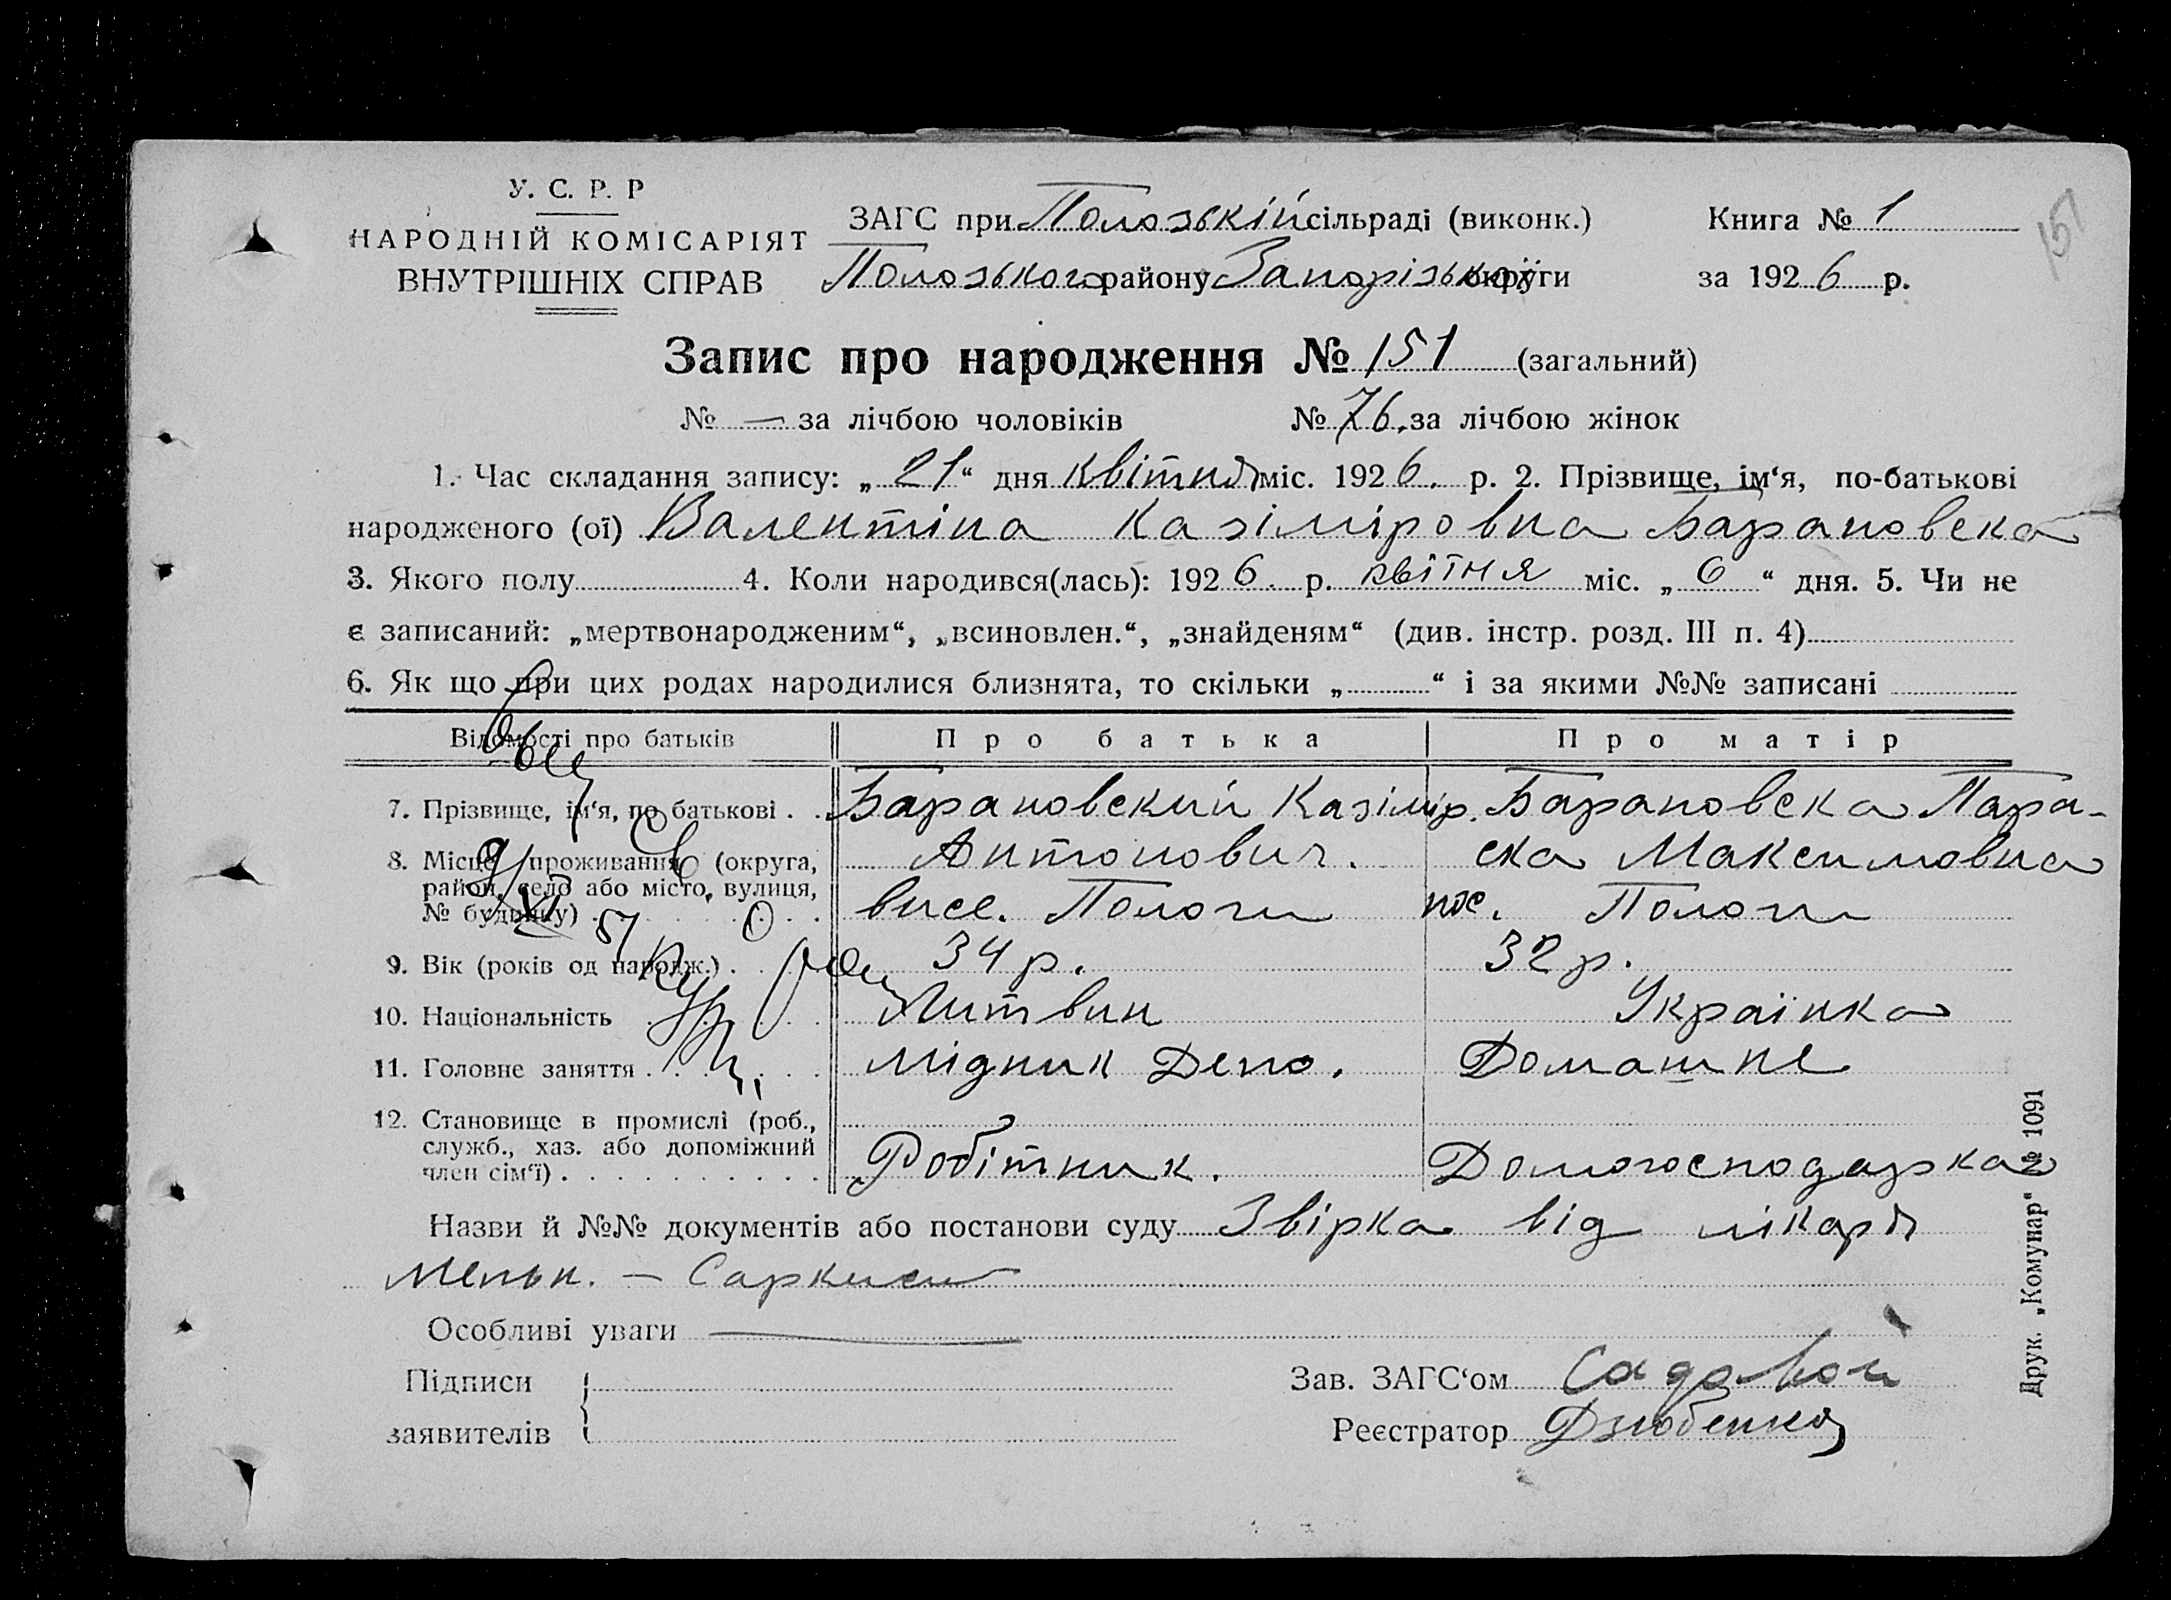 У. С. Р. Р
НАРОДНІЙ КОМІСАРІЯТ
ВНУТРІШНІХ СПРАВ
ЗАГС при Полозькій сільраді (виконк.)
Полозького району Запорізької округи
Книга № 1
за 1926 р.
151
Запис про народження № 151 (загальний)
№ — за лічбою чоловіків № 76. за лічбою жінок
1. Час складання запису: „21“ дня квітня міс. 1926. р. 2. Прізвище, ім‘я, по-батькові
народженого (ої) Валентіна Казіміровна Барановска
3. Якого полу 4. Коли народився(лась): 1926. р. квітня міс. „6“ дня. 5. Чи не
є записаний: „мертвонародженим“, „всиновлен.“, „знайденям“ (див. інстр. розд. III п. 4)
6. Як що при цих родах народилися близнята, то скільки „ “ і за якими №№ записані
Відомості про батьків Про батька Про матір
7. Прізвище, ім‘я, по батькові . . Барановский Казімір. Барановска Пара-
8. Місце проживання (округа, Антонович. ска Максимовна
район, село або місто, вулиця,
№ будинку) . висе. Пологи пос. Пологи
9. Вік (років од народж.) . 34 р. 32 р.
10. Національність Литвин Українка
11. Головне заняття . мідник Депо. Домашнє
12. Становище в промислі (роб.,
служб., хаз. або допоміжний
член сім‘ї) . Робітник. Домогосподарка
Назви й №№ документів або постанови суду Звірка від лікаря
Особливі уваги —
Підписи
заявителів
Зав. ЗАГС‘ом Садовой
Реєстратор Дзюбенко
Друк. „Комунар“ № 1091